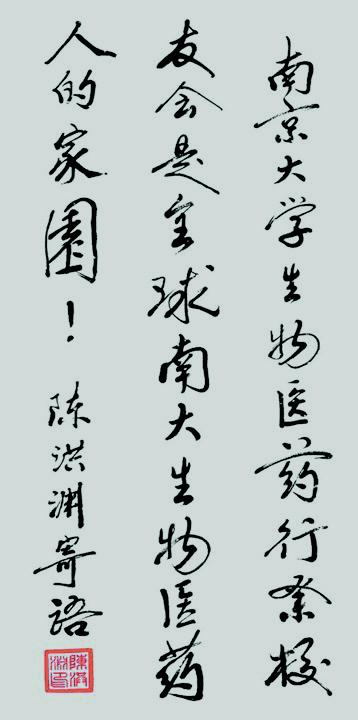 南京大学生物医药行业校
友会是全球南大生物医药
人的家園！
陈洪渊寄語
陳洪淵印